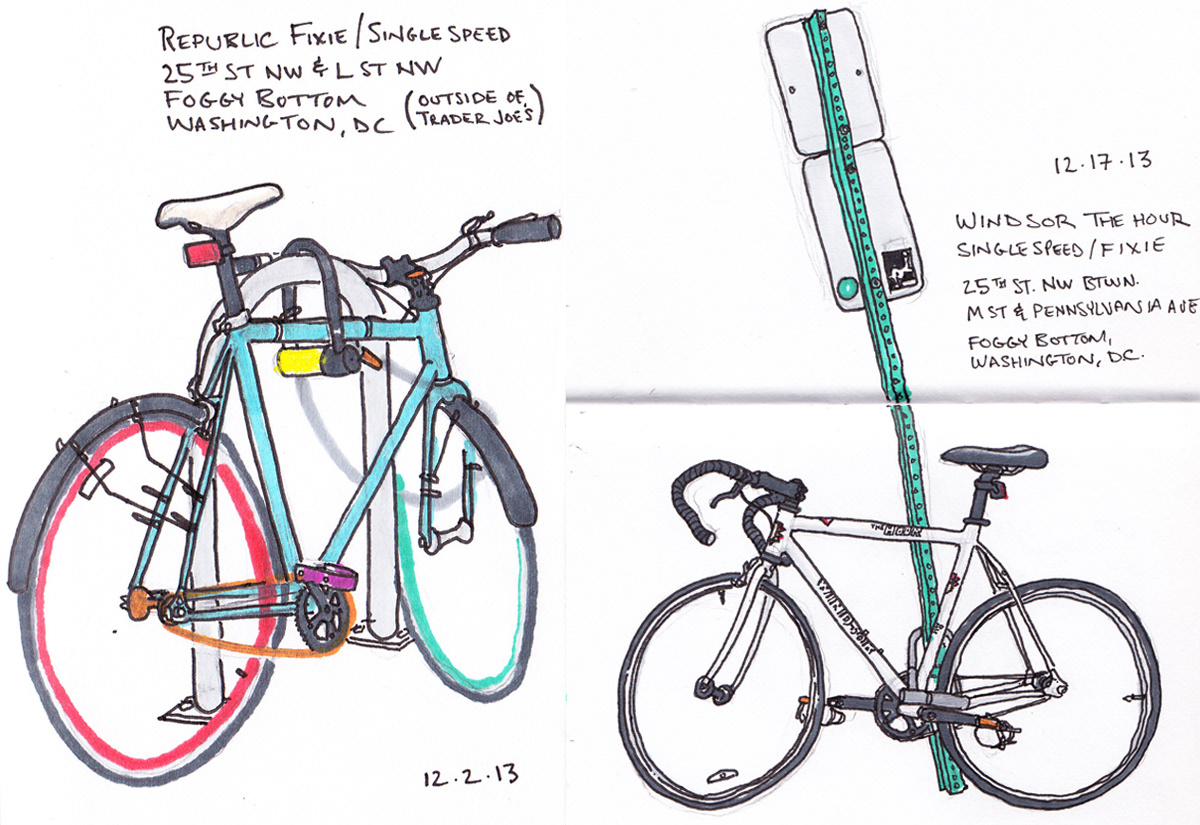 REPUBLIC FIXIE/SINGLESPEED
25TH ST NW & L ST NW
FOGGY BOTTOM (OUTSIDE OF
WASHINGTON, DC TRADER JOE'S)
12.2.13
12.17.13
WINDSOR THE HOUR
SINGLESPEED/FIXIE
25TH ST. NW BTWN.
M ST & PENNSYLVANIA AVE
FOGGY BOTTOM,
WASHINGTON, D.C.
THE HOUR
WINDSOR